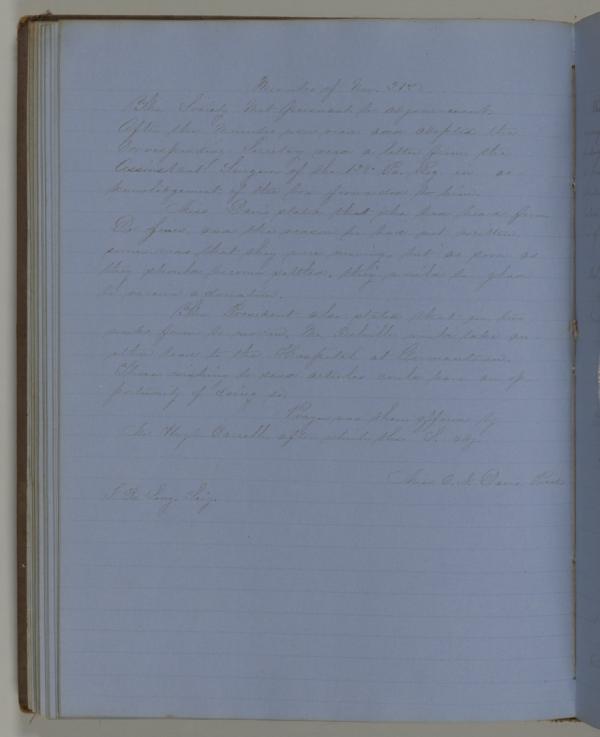 Minutes of Nov. 21st
The Society Met pursuant to adjournment.
After the Minutes were read and adopted the
Corresponding Secretary read a letter from the
Assisstant Surgeon of the 1st Reg in ac
knowledgement of the box forwarded to him.
Miss Davis stated that she had heard from
Dr and the reason he had not written
was that they were moving, but as soon as
they should become settled, they would be glad
to receive a donation.
The President also stated that in two
weeks from to Mr would take an
other load to the Hospital at Germantown.
Those wishing to send articles could have an op
portunity of doing so.
Prayer was then offered by
Mr Hugh after which the S. adj.
Miss Davis Pres
Secy.